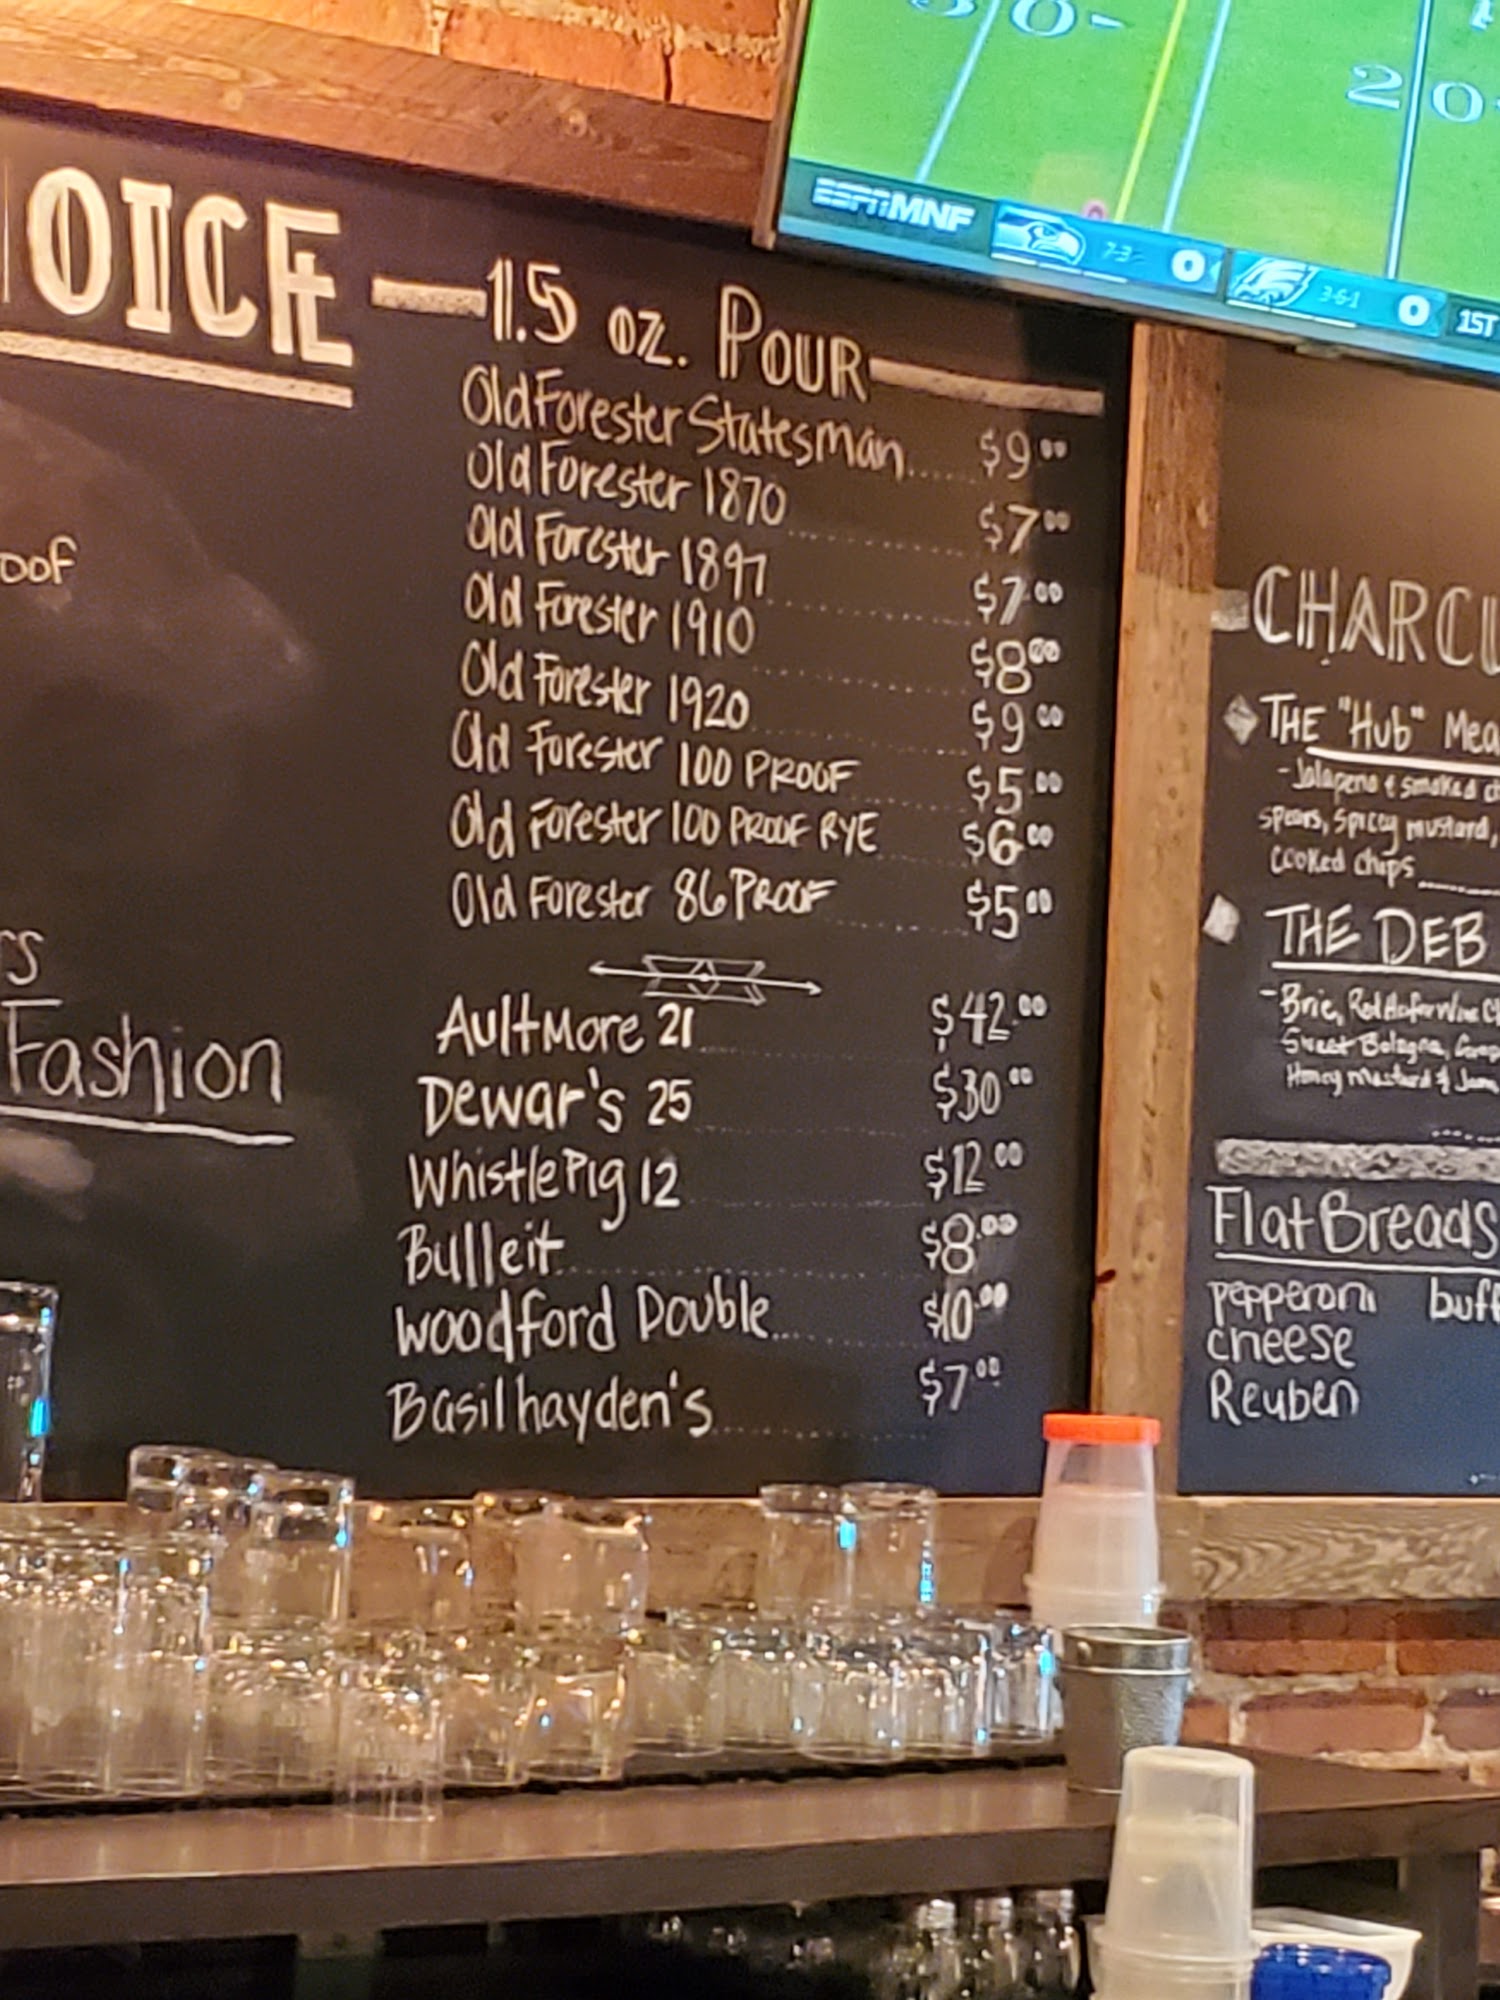 OICE
1.5 oz. POUR
Old Forester Statesman...... $9.00
Old Forester 1870 ............ $7.00
Old Forester 1897 ............ $7.00
Old Forester 1910 ............ $8.00
Old Forester 1920 ............ $9.00
Old Forester 100 PROOF ...... $5.00
Old Forester 100 PROOF RYE ... $6.00
Old Forester 86 PROOF ...... $5.00
AultMore 21 ............ $42.00
Dewar's 25 ............ $30.00
WhistlePig 12 ............ $12.00
Bulleit ............ $8.00
Woodford Double ...... $10.00
Basilhayden's ............ $7.00
OOF
rs
Fashion
3 0
2 0
ESPN MNF
7-3 0
3-6-1 0
1ST
CHARCU
THE "Hub" Mea
- Jalapeno & smoked ch
spears, spicy mustard,
cooked chips
THE DEB
- Brie, Wine Ch
Sweet Bologna,
Honey mustard & Jam
FlatBreads
pepperoni buff
cheese
Reuben